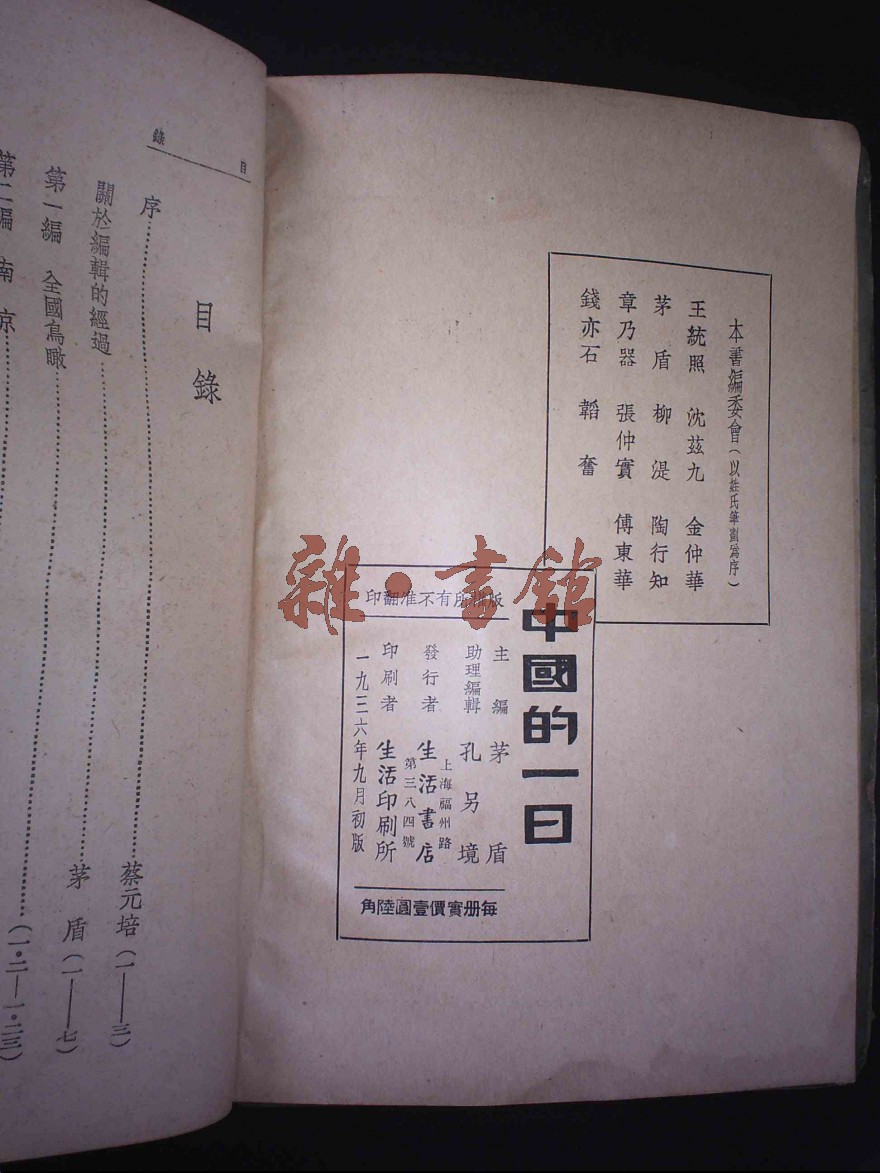 本書編委會(以姓氏筆劃爲序)
王統照 沈茲九 金仲華
茅盾 柳湜 陶行知
章乃器 張仲實 傅東華
錢亦石 韜奮
中國的一日
版權所有不准翻印
主編 茅盾
助理編輯 孔另境
發行者 生活書店
上海福州路
第三八四號
印刷者 生活印刷所
一九三六年九月初版
每册實價壹圓陸角
雜·書館
目錄
目錄
序……蔡元培(一——三)
關於編輯的經過……茅盾(一——七)
第一編 全國鳥瞰……(一·二—一·二三)
第二編 南京